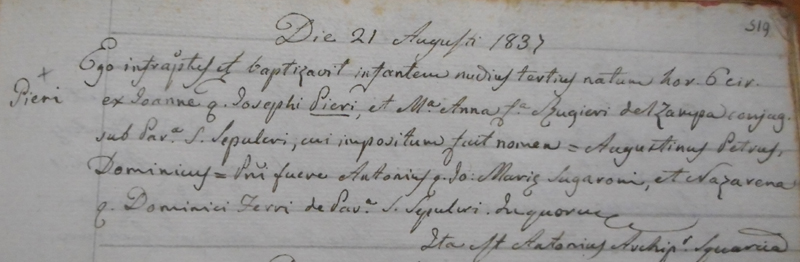 319
Die 21 Augusti 1837
Ego infraptus et baptizavit infantem nudius tertius natum hor. 6 cir.
Pieri
ex Joanne q. Josephi Pieri, et Mª Anna fª Rugieri del Zampa conjug.
sub Parª S. Sepulcri, cui impositum fuit nomen = Augustinus Petrus,
Dominicus = Pňi fuere Antonius q. Jo: Mariæ Sugaroni, et Nazarena
q. Dominici Ferri de Parª S. Sepulcri. In quorum
Ita est Antonius Archipr